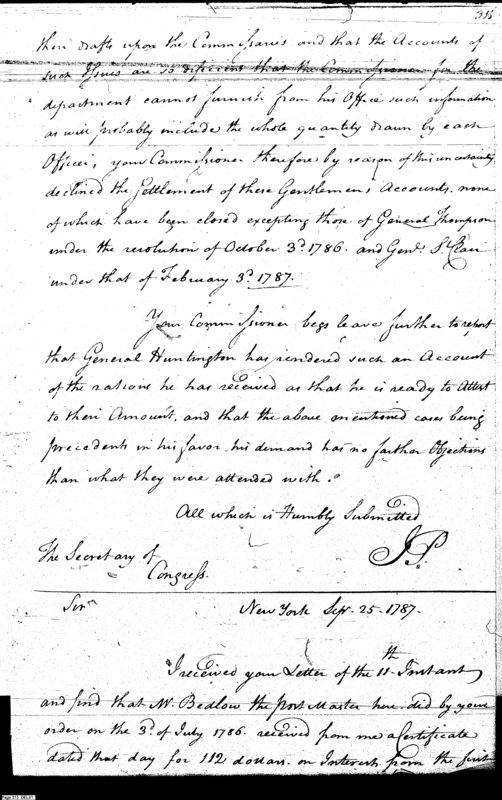 311
their drafts upon the Commissaries and that the Accounts of
such Issues are so deficient that the Commissioner for the
department cannot furnish from his Office such information
as will probably include the whole quantity drawn by each
Officer, your Commissioner therefore by reason of this uncertainty
declined the Settlement of these Gentlemen's Accounts. none
of which have been closed excepting those of General Thompson
under the resolution of October 3d. 1786. and Genl. St. Clair
under that of February 3d. 1787.
Your Commissioner begs leave further to report
that General Huntington has rendered such an Account
of the rations he has received as that he is ready to Attest
to their Amount, and that the above mentioned cases being
precedents in his favor, his demand has no farther Objections
than what they were attended with.
All which is Humbly Submitted
The Secretary of
Congress.
J.P.
Sir
New York Sept. 25. 1787.
I received your Letter of the 11th. Instant
and find that Mr. Bedlow the post Master here did by your
order on the 3d. of July 1786 received from me a Certificate
dated that day for 112 dollars. on Interest from the first